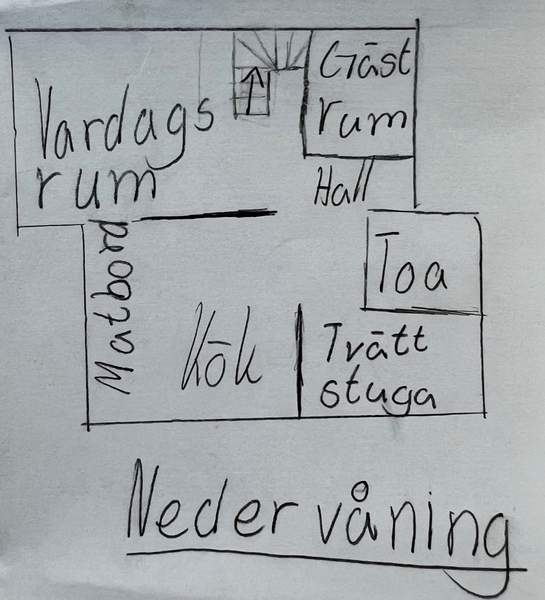 Vardags
rum
Gäst
rum
Hall
Matbord
Toa
Kök
Tvätt
stuga
Neder våning